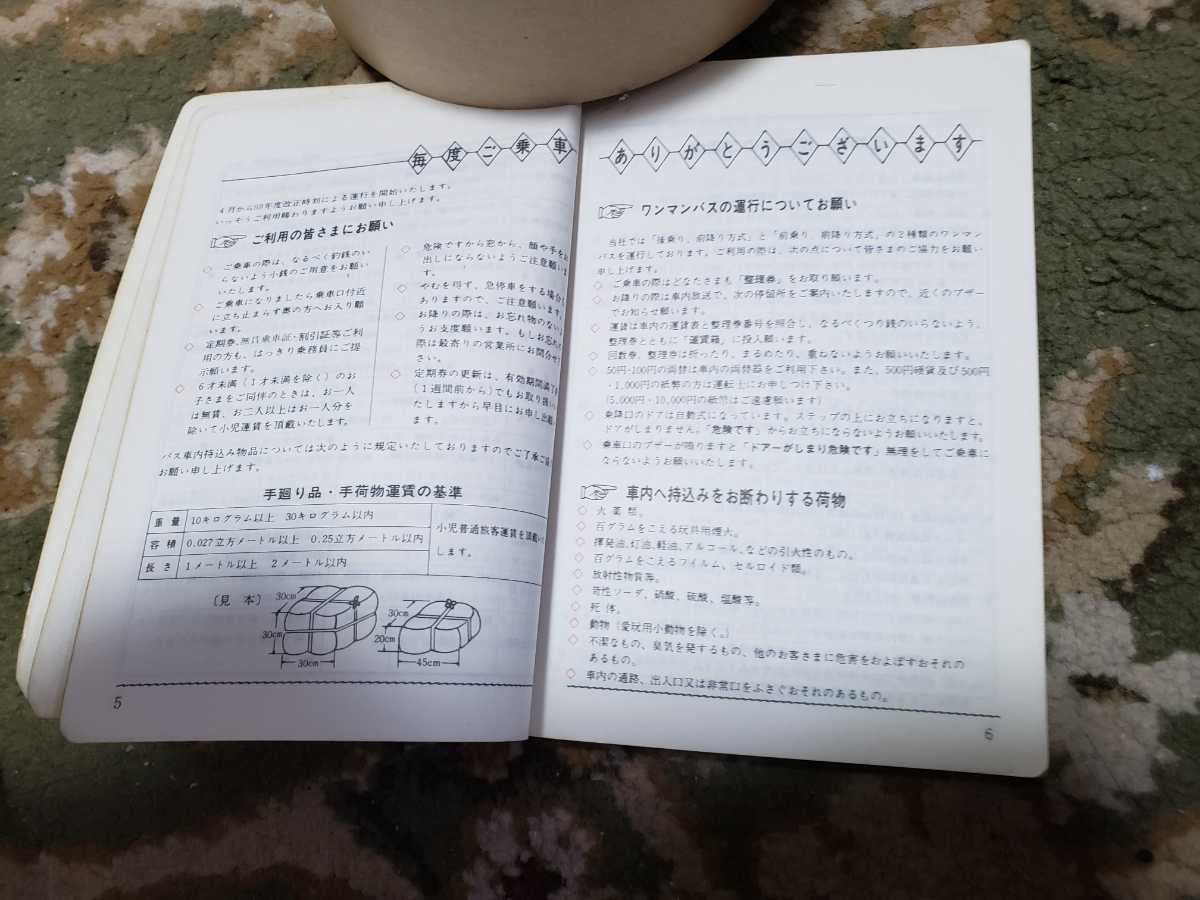 毎度ご乗車
4月から59年度改正時刻による運行を開始いたします。
いっそうご利用賜わりますようお願い申し上げます。
ご利用の皆さまにお願い
◇ ご乗車の際は、なるべく釣銭のい
らないよう小銭のご用意をお願い
いたします。
◇ ご乗車になりましたら乗車口付近
に立ち止まらず奥の方へお入り願
います。
◇ 定期券、無賃乗車証・割引証等ご利
用の方も、はっきり乗務員にご提
示願います。
◇ 6才未満(1才未満を除く)のお
子さまをご同伴のときは、お一人
は無賃、お二人以上はお一人分を
除いて小児運賃を頂戴いたします。
◇ 危険ですから窓から、顔や手をお
出しにならないようご注意願いま
す。
◇ やむを得ず、急停車をする場合
ありますので、ご注意願います。
◇ お降りの際は、お忘れ物のない
うお支度願います。もしお忘れ
際は最寄りの営業所にお問合せ
さい。
◇ 定期券の更新は、有効期間満了
(1週間前から)でもお取り扱い
たしますから早目にお申し出願い
ます。
バス車内持込み物品については次のように規定いたしておりますのでご了承ご
お願い申し上げます。
手廻り品・手荷物運賃の基準
重量 10キログラム以上 30キログラム以内
容積 0.027立方メートル以上 0.25立方メートル以内
長さ 1メートル以上 2メートル以内
小児普通旅客運賃を頂戴
します。
〔見本〕
30cm
30cm
30cm
30cm
20cm
45cm
5
ありがとうございます
ワンマンバスの運行についてお願い
当社では「後乗り、前降り方式」と「前乗り、前降り方式」の2種類のワンマン
バスを運行しております。ご利用の際は、次の点について皆さまのご協力をお願い
申し上げます。
◇ ご乗車の際はどなたさまも「整理券」をお取り願います。
◇ お降りの際は車内放送で、次の停留所をご案内いたしますので、近くのブザー
でお知らせ願います。
◇ 運賃は車内の運賃表と整理券番号を照合し、なるべくつり銭のいらないよう、
整理券とともに「運賃箱」に投入願います。
◇ 回数券、整理券は折ったり、まるめたり、重ねないようお願いいたします。
◇ 50円・100円の両替は車内の両替器をご利用下さい。また、500円硬貨及び500円
・1,000円の紙幣の方は運転士にお申しつけ下さい。
(5,000円・10,000円の紙幣はご遠慮願います)
◇ 乗降口のドアは自動式になっています。ステップの上にお立ちになりますと、
ドアがしまりません。「危険です」からお立ちにならないようお願いいたします。
◇ 乗車口のブザーが鳴りますと「ドアーがしまり危険です」無理をしてご乗車に
ならないようお願いいたします。
車内へ持込みをお断わりする荷物
◇ 火薬類。
◇ 百グラムをこえる玩具用煙火。
◇ 揮発油、灯油、軽油、アルコール、などの引火性のもの。
◇ 百グラムをこえるフイルム、セルロイド類。
◇ 放射性物質等。
◇ 苛性ソーダ、硝酸、硫酸、塩酸等。
◇ 死体。
◇ 動物(愛玩用小動物を除く。)
◇ 不潔なもの、臭気を発するもの、他のお客さまに危害をおよぼすおそれの
あるもの。
◇ 車内の通路、出入口又は非常口をふさぐおそれのあるもの。
6